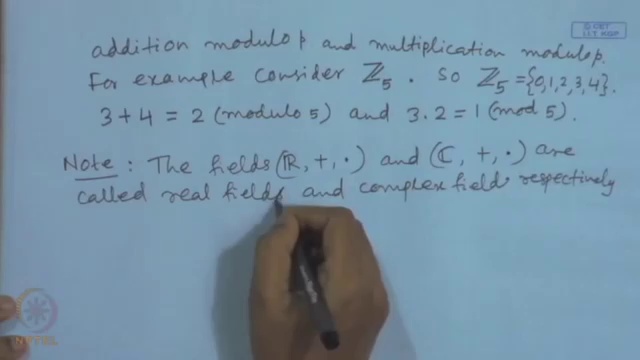 © CET
I.I.T. KGP
addition modulo p and multiplication modulo p.
For example consider ℤ₅. So ℤ₅ = {0,1,2,3,4}.
3 + 4 = 2 (modulo 5) and 3.2 = 1 (mod 5).
Note: The fields (ℝ, +, ·) and (ℂ, +, ·) are
called real fields and complex fields respectively
NPTEL